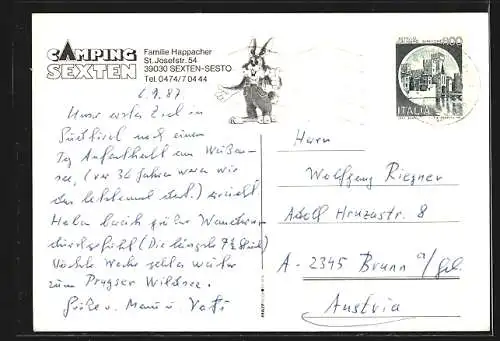 CAMPING
SEXTEN
Familie Happacher
St. Josefstr. 54
39030 SEXTEN-SESTO
Tel. 0474/70444
800
ITALIA
6.9.87
Unser erstes Ziel in
Südtirol nach einem
Tag Aufenthalt am Weißen-
see, (vor 36 Jahren waren wir
das letztemal dort.) erreicht
Haben bereits große Wanderung
durchgeführt (Die längste 7½ Std)
Nächste Woche geht's weiter
zum Pragser Wildsee.
Grüße v. Mami u Vati
Herrn
Wolfgang Riegner
Adolf Hruzastr. 8
A - 2345 Brunn a/Geb.
Austria